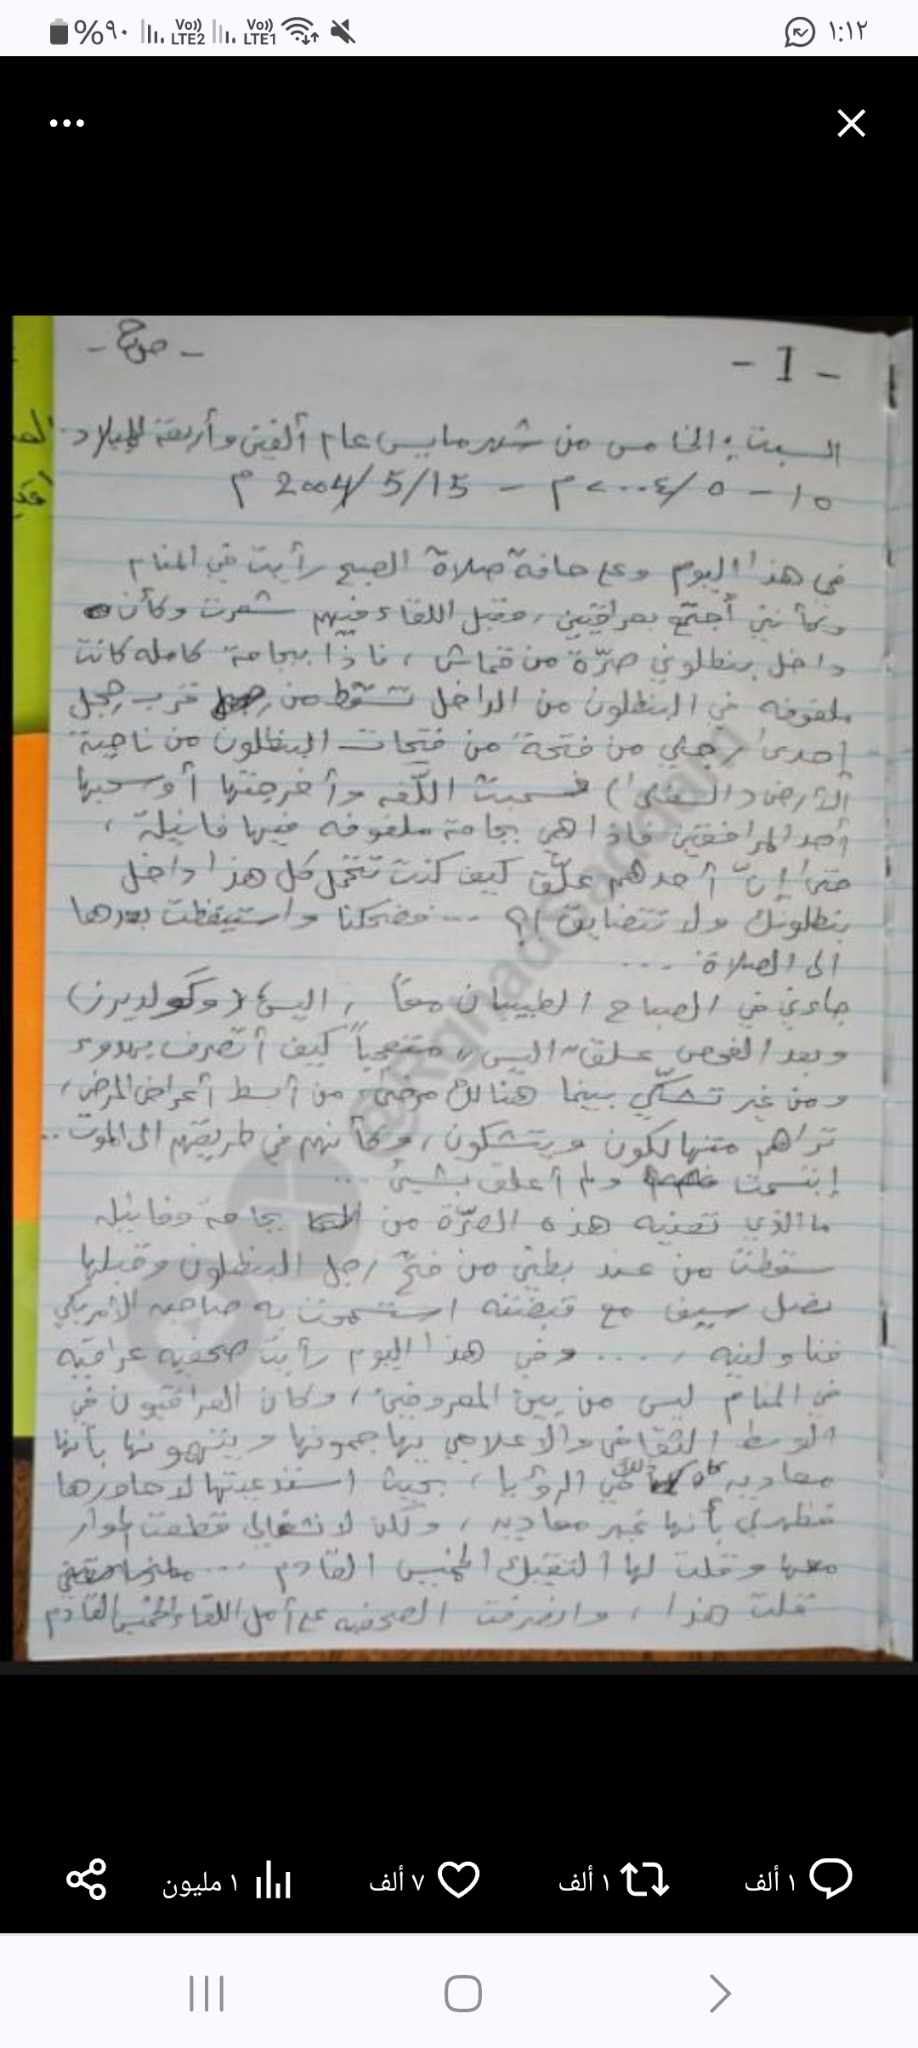 ١:١٢
%٩٠ Vo)) LTE2 Vo)) LTE1
- I -
السبت: الخامس من شهر مايس عام ألفين وأربعة للميلاد
١٥ - ٥ /٢٠٠٤ م - 2004/5/15 م
في هذا اليوم وعلى حافة صلاة الصبح رأيت في المنام
وكأنني أجتمع بعراقيين، وقبل اللقاء فيهم شعرت وكأن
داخل بنطلوني صرّة من قماش، فاذا بيجامة كاملة كانت
ملفوفه في البنطلون من الداخل تسقط من قرب رجل
إحدى رجلي من فتحة من فتحات البنطلون من ناحية
الأرض (السفلى) فسحبت اللفه وأخرجتها أو سحبها
أحد المرافقين فاذا هي بجامة ملفوفه فيها فانيلة،
حتى إنّ أحدهم علّق كيف كنت تتحمل كل هذا داخل
بنطلونك ولا تتضايق؟! ... فضحكنا واستيقظت بعدها
الى الصلاة ...
جاءني في الصباح الطبيبان معاً، اليس (وكولديرز)
وبعد الفحص علق اليس، متعجباً كيف أتصرف بهدوء
ومن غير تشكّي بينما هنالك مرضى، من أبسط أعراض المرض،
تراهم متهالكون ويتشكون، وكأنهم في طريقهم الى الموت..
إبتسمت ولم أعلق بشيئ ...
ما الذي تعنيه هذه الصرّة من بجامة وفانيله
سقطت من عند بطني من فتح رجل البنطلون وقبلها
نصل سيف مع قبضته استحوذت به صاحبه الأمريكي
فناولنيه ،.... وفي هذا اليوم رأيت صحفيه عراقيه
في المنام ليس من بين المعروفين، وكان العراقيون في
الوسط الثقافي والاعلامي يهاجمونها ويتهمونها بأنها
معاديه في الرؤيا، بحيث استدعيتها لاحاورها
فظهر لي بأنها غير معاديه، ولكن لانشغالي قطعت الحوار
معها وقلت لها ألتقيك الخميس القادم ...
قلت هذا، وانصرفت الصحفيه على أمل اللقاء الخميس القادم
@RghadSaddam
١ ألف
١ ألف
٧ ألف
١ مليون